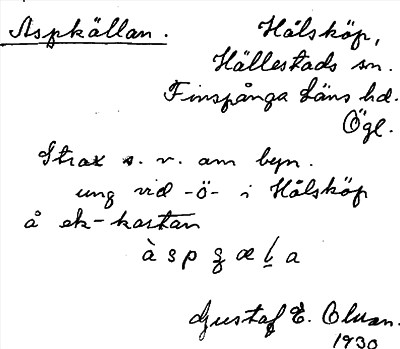 Aspkällan. Hålsköp,
Hällestads sn.
Finspånga läns hd.
Ögl.
Strax s. v. om byn.
ung vid -ö- i Hålsköp
å ek-kartan
à s p ʓ æ l̲ a
Gustaf E. Olsson.
1930